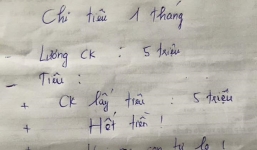 Chi tiêu 1 tháng
- Lương CK : 5 triệu
- Tiêu :
+ CK lấy tiêu : 5 triệu
+ Hết tiền !